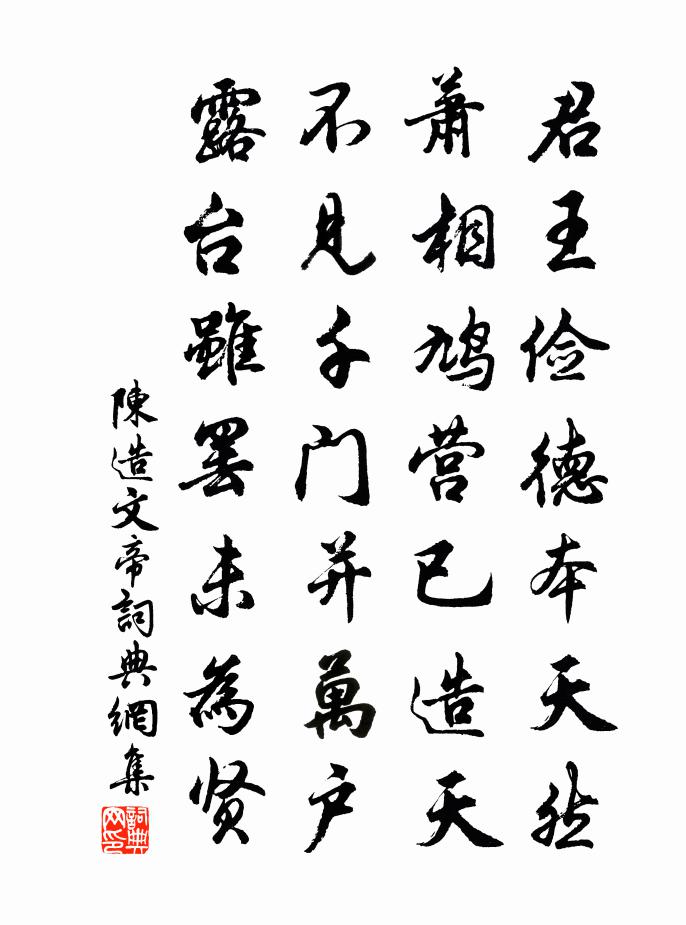 君王俭德本天然
萧相鸠营已造天
不见千门并萬户
露台雖罢未為贤
陳造文帝詞典網集
詞典网印